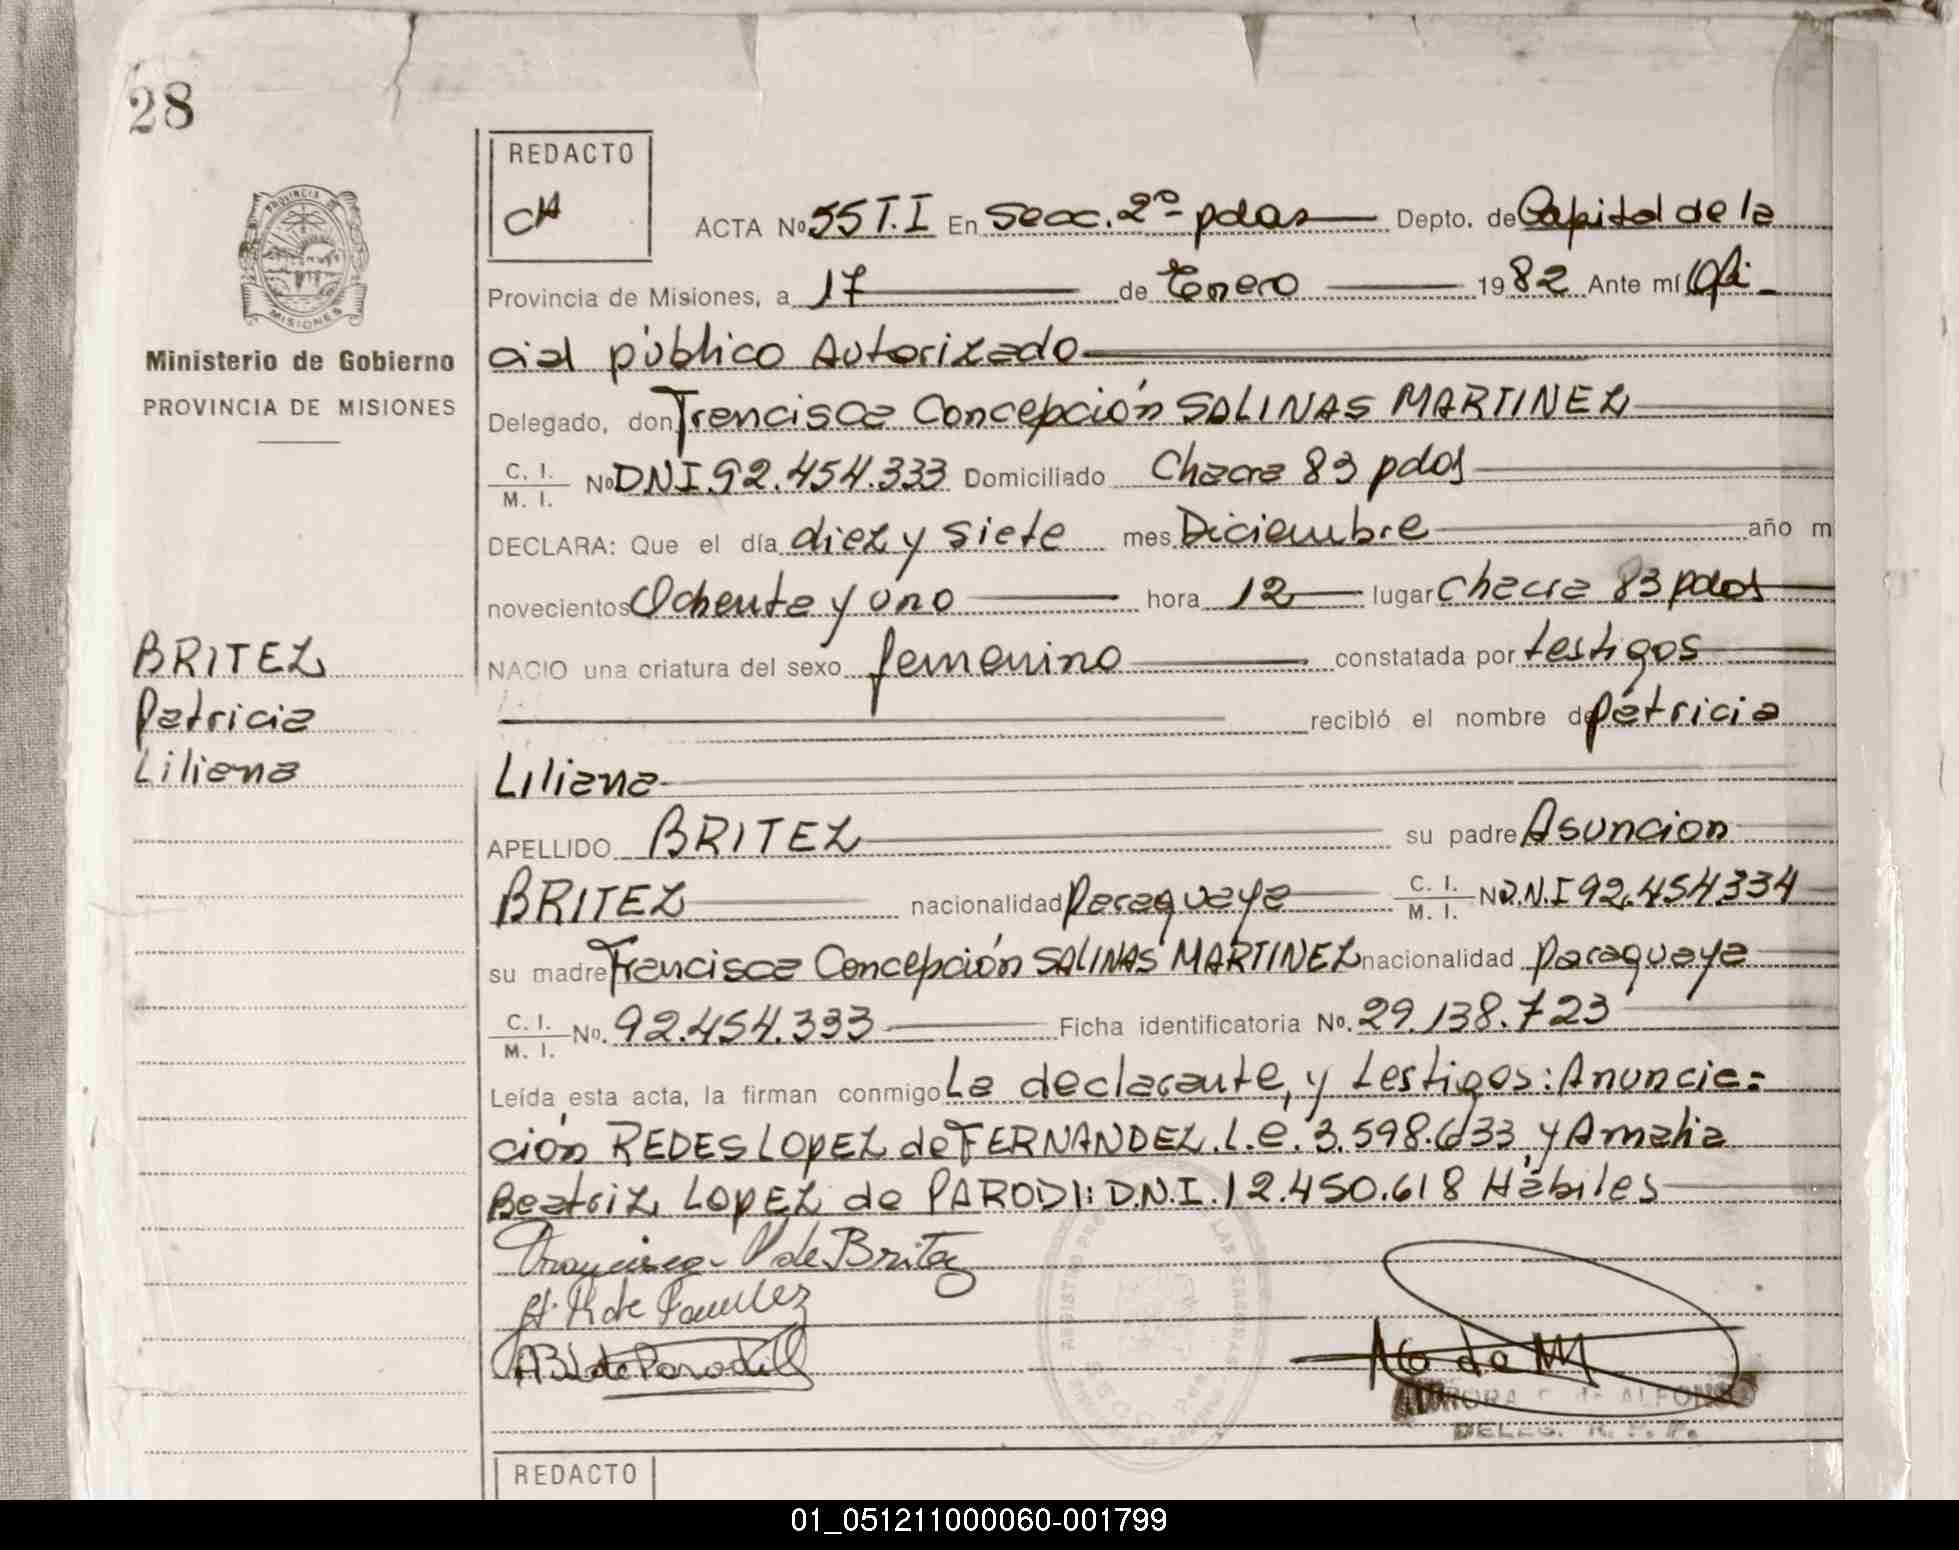 28
REDACTO
CH
PROVINCIA DE
MISIONES
Ministerio de Gobierno
PROVINCIA DE MISIONES
ACTA Nº 55 T.I En Secc. 2º- pdas Depto. de Capital de la
Provincia de Misiones, a 17 de Enero 1982 Ante mí Ofi-
cial público Autorizado
Delegado, don Francisca Concepción SALINAS MARTINEZ
C. I.
M. I. Nº DNI 92.454.333 Domiciliado Chacra 83 pdas
DECLARA: Que el día diez y siete mes Diciembre año m
novecientos Ochenta y uno hora 12 lugar Chacra 83 pdas
NACIO una criatura del sexo femenino constatada por testigos
recibió el nombre de Patricia
Liliana
APELLIDO BRITEZ su padre Asuncion
BRITEZ nacionalidad Paraguaya C. I. M. I. Nº D.N.I 92.454334
su madre Francisca Concepción SALINAS MARTINEZ nacionalidad Paraguaya
C. I.
M. I. Nº. 92.454.333 Ficha identificatoria Nº. 29.138.723
Leída esta acta, la firman conmigo La declarante, y testigos: Anuncia=
ción REDES LOPEZ de FERNANDEZ. L.e. 3.598.633 y Amalia
Beatriz LOPEZ de PARODI: D.N.I. 12.450.618 Hábiles
BRITEZ
Patricia
Liliana
de Britez
A B L de Parodi
de ALFONSO
DELEG. R. P. P.
REDACTO
01_051211000060-001799